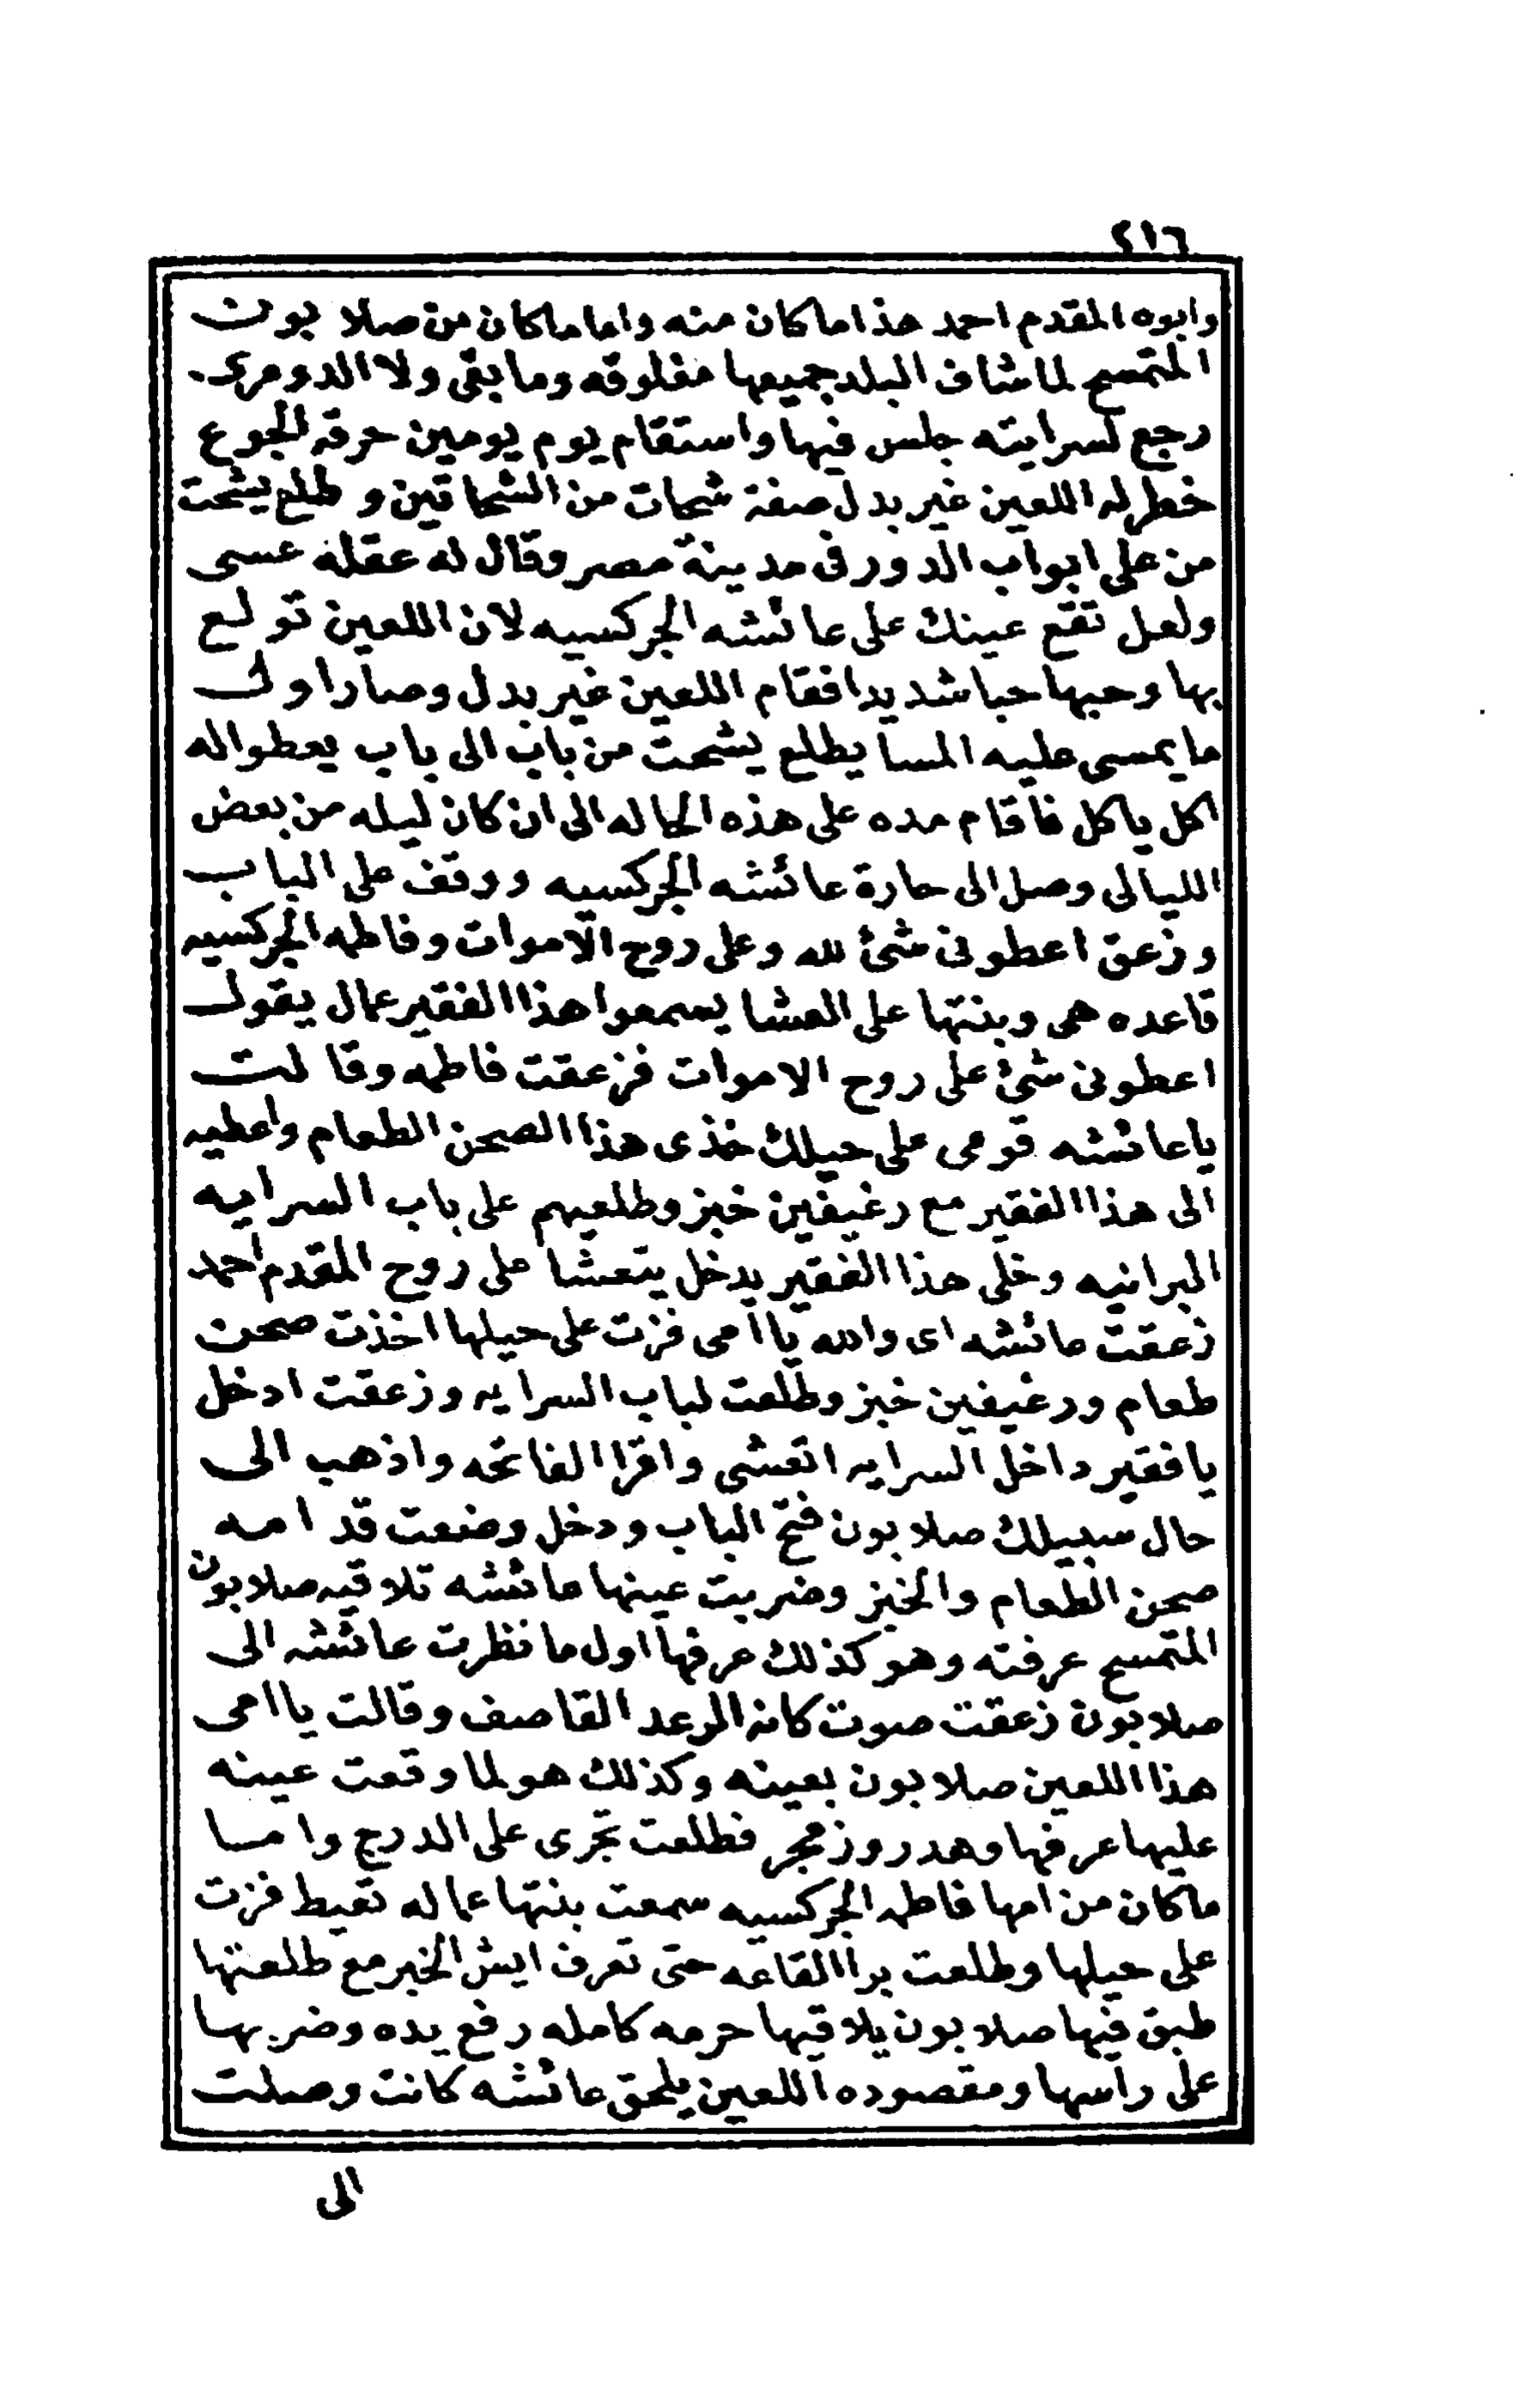 ٤١٦
وابوه المقدم احمد هذا ما كان منه واما ما كان من صلا بون
المتمسح لما شاف البلد جميعها مغلوقه وما بقى ولا الدومرى
رجع لسرايته جلس فيها واستقام يوم يومين حرقه الجوع
خطر له اللعين غير بدل صفة شحات من الشحاتين و طلع يشحت
من على ابواب الدور فى مدينة مصر وقال له عقله عسى
ولعل تقع عينك على عائشه الجركسيه لان اللعين تولع
بها وحبها حبا شديدا فقام اللعين غير بدل وصار اول
ما يمسى عليه المسا يطلع يشحت من باب الى باب يعطوا له
اكل ياكل فاقام مده على هذه الحاله الى ان كان ليله من بعض
الليالى وصل الى حارة عائشه الجركسيه ووقف على الباب
وزعق اعطونى شئ لله وعلى روح الاموات وفاطمه الجركسيه
قاعده هى وبنتها على العشا يسمعوا هذا الفقير عمال يقول
اعطونى شئ على روح الاموات فزعقت فاطمه وقالت
يا عائشه قومى على حيلك خذى هذا الصحن الطعام واعطيه
الى هذا الفقير مع رغيفين خبز وطلعيهم على باب السرايه
البرانيه وخلى هذا الفقير يدخل يتعشا على روح المقدم احمد
زعقت عائشه اى والله يا امى فزت على حيلها اخذت صحن
طعام ورغيفين خبز وطلعت لباب السرايه وزعقت ادخل
يا فقير داخل السرايه اتعشى واقرا الفاتحه واذهب الى
حال سبيلك صلابون فتح الباب ودخل وضعت قدامه
صحن الطعام والخبز وضربت عينها عائشه تلاقيه صلابون
المتمسح عرفته وهو كذلك عرفها اول ما نظرت عائشه الى
صلابون زعقت صوت كانه الرعد القاصف وقالت يا امى
هذا اللعين صلابون بعينه وكذلك هو لما وقعت عينه
عليها عرفها وهدر وزمجر فطلعت تجرى على الدرج واما
ما كان من امها فاطمه الجركسيه سمعت بنتها عماله تعيط فزت
على حيلها وطلعت برا القاعه حتى تعرف ايش الخبر مع طلعتها
طبق فيها صلابون يلاقيها حرمه كامله رفع يده وضربها
على راسها ومقصوده اللعين يلحق عائشه كانت وصلت
الى